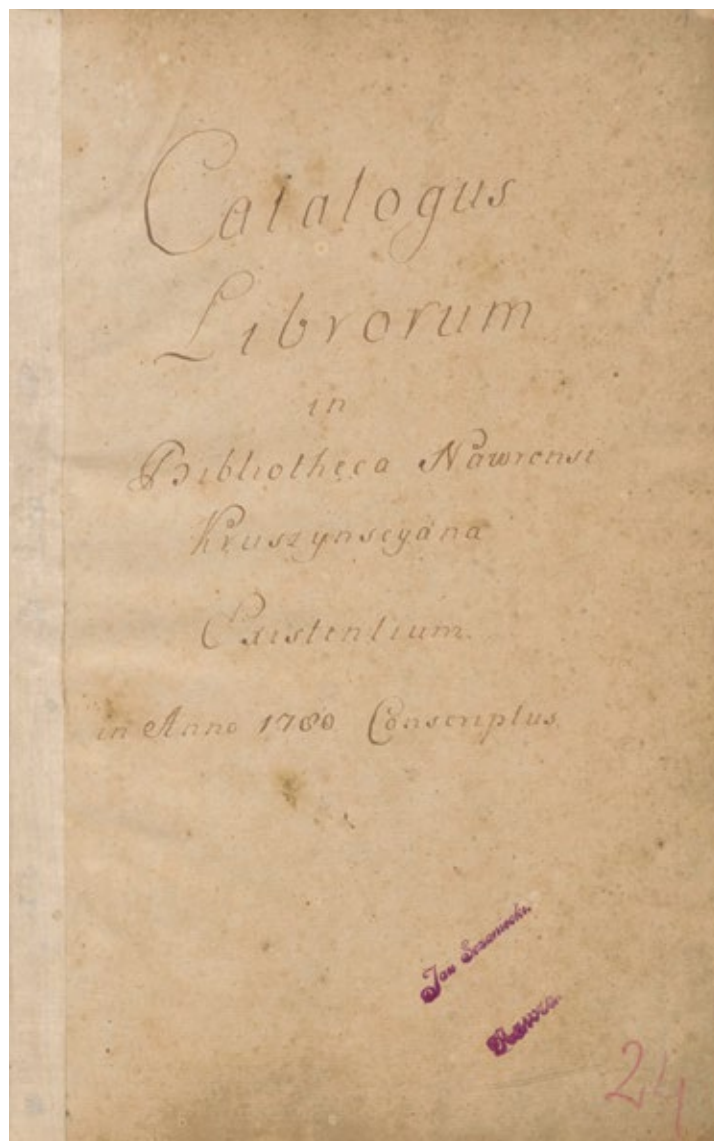 Catalogus
Librorum
in
Bibliotheca Nawrensi
Kruszynscyana
Existentium
in Anno 1780 Conscriptus.
Jan Sczaniecki.
Nawra.
24